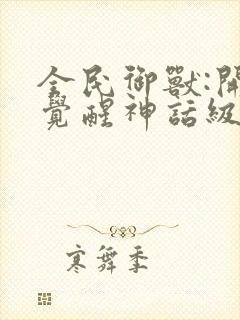 全民御獸:開
覺醒神話級
寒舞季